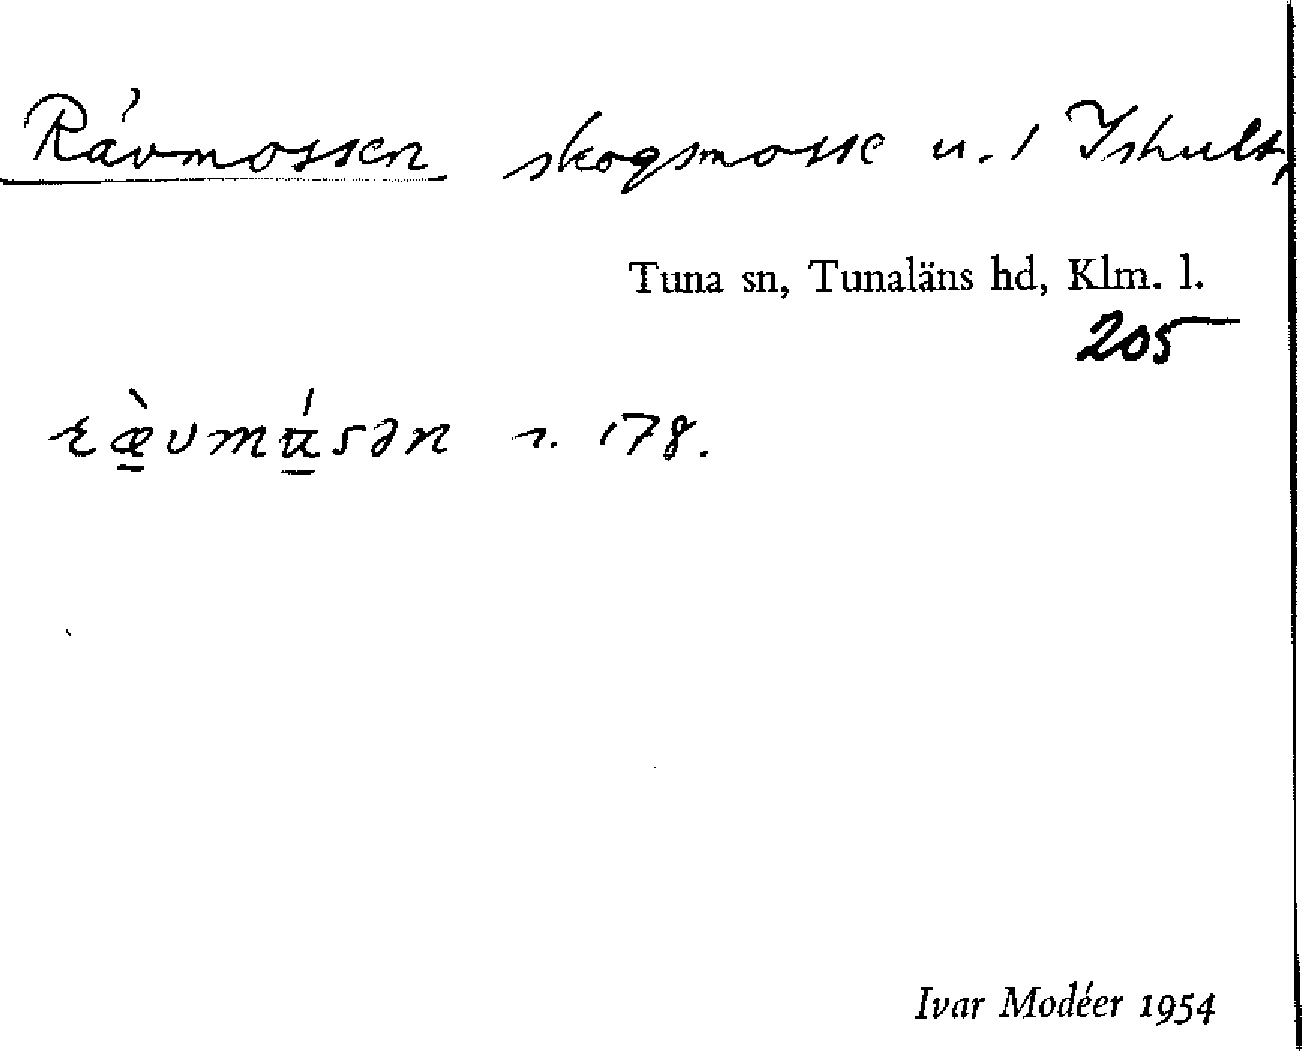 Rävmossen skogsmosse u. 1 Ishult,
Tuna sn, Tunaläns hd, Klm. l.
205
ræ̀vmúsən s. 178.
Ivar Modéer 1954